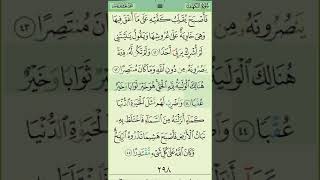 سُورَةُ الْكَهْفِ
فَأَصْبَحَ يُقَلِّبُ كَفَّيْهِ عَلَىٰ مَا أَنفَقَ فِيهَا
وَهِيَ خَاوِيَةٌ عَلَىٰ عُرُوشِهَا وَيَقُولُ يَٰلَيْتَنِي
لَمْ أُشْرِكْ بِرَبِّي أَحَدًا ٤٢ وَلَمْ تَكُن لَّهُۥ فِئَةٌ
يَنصُرُونَهُۥ مِن دُونِ ٱللَّهِ وَمَا كَانَ مُنتَصِرًا ٤٣
هُنَالِكَ ٱلْوَلَٰيَةُ لِلَّهِ ٱلْحَقِّ هُوَ خَيْرٌ ثَوَابًا وَخَيْرٌ
عُقْبًا ٤٤ وَٱضْرِبْ لَهُم مَّثَلَ ٱلْحَيَوٰةِ ٱلدُّنْيَا
كَمَآءٍ أَنزَلْنَٰهُ مِنَ ٱلسَّمَآءِ فَٱخْتَلَطَ بِهِۦ
نَبَاتُ ٱلْأَرْضِ فَأَصْبَحَ هَشِيمًا تَذْرُوهُ ٱلرِّيَٰحُ
وَكَانَ ٱللَّهُ عَلَىٰ كُلِّ شَىْءٍ مُّقْتَدِرًا ٤٥
٢٩٨